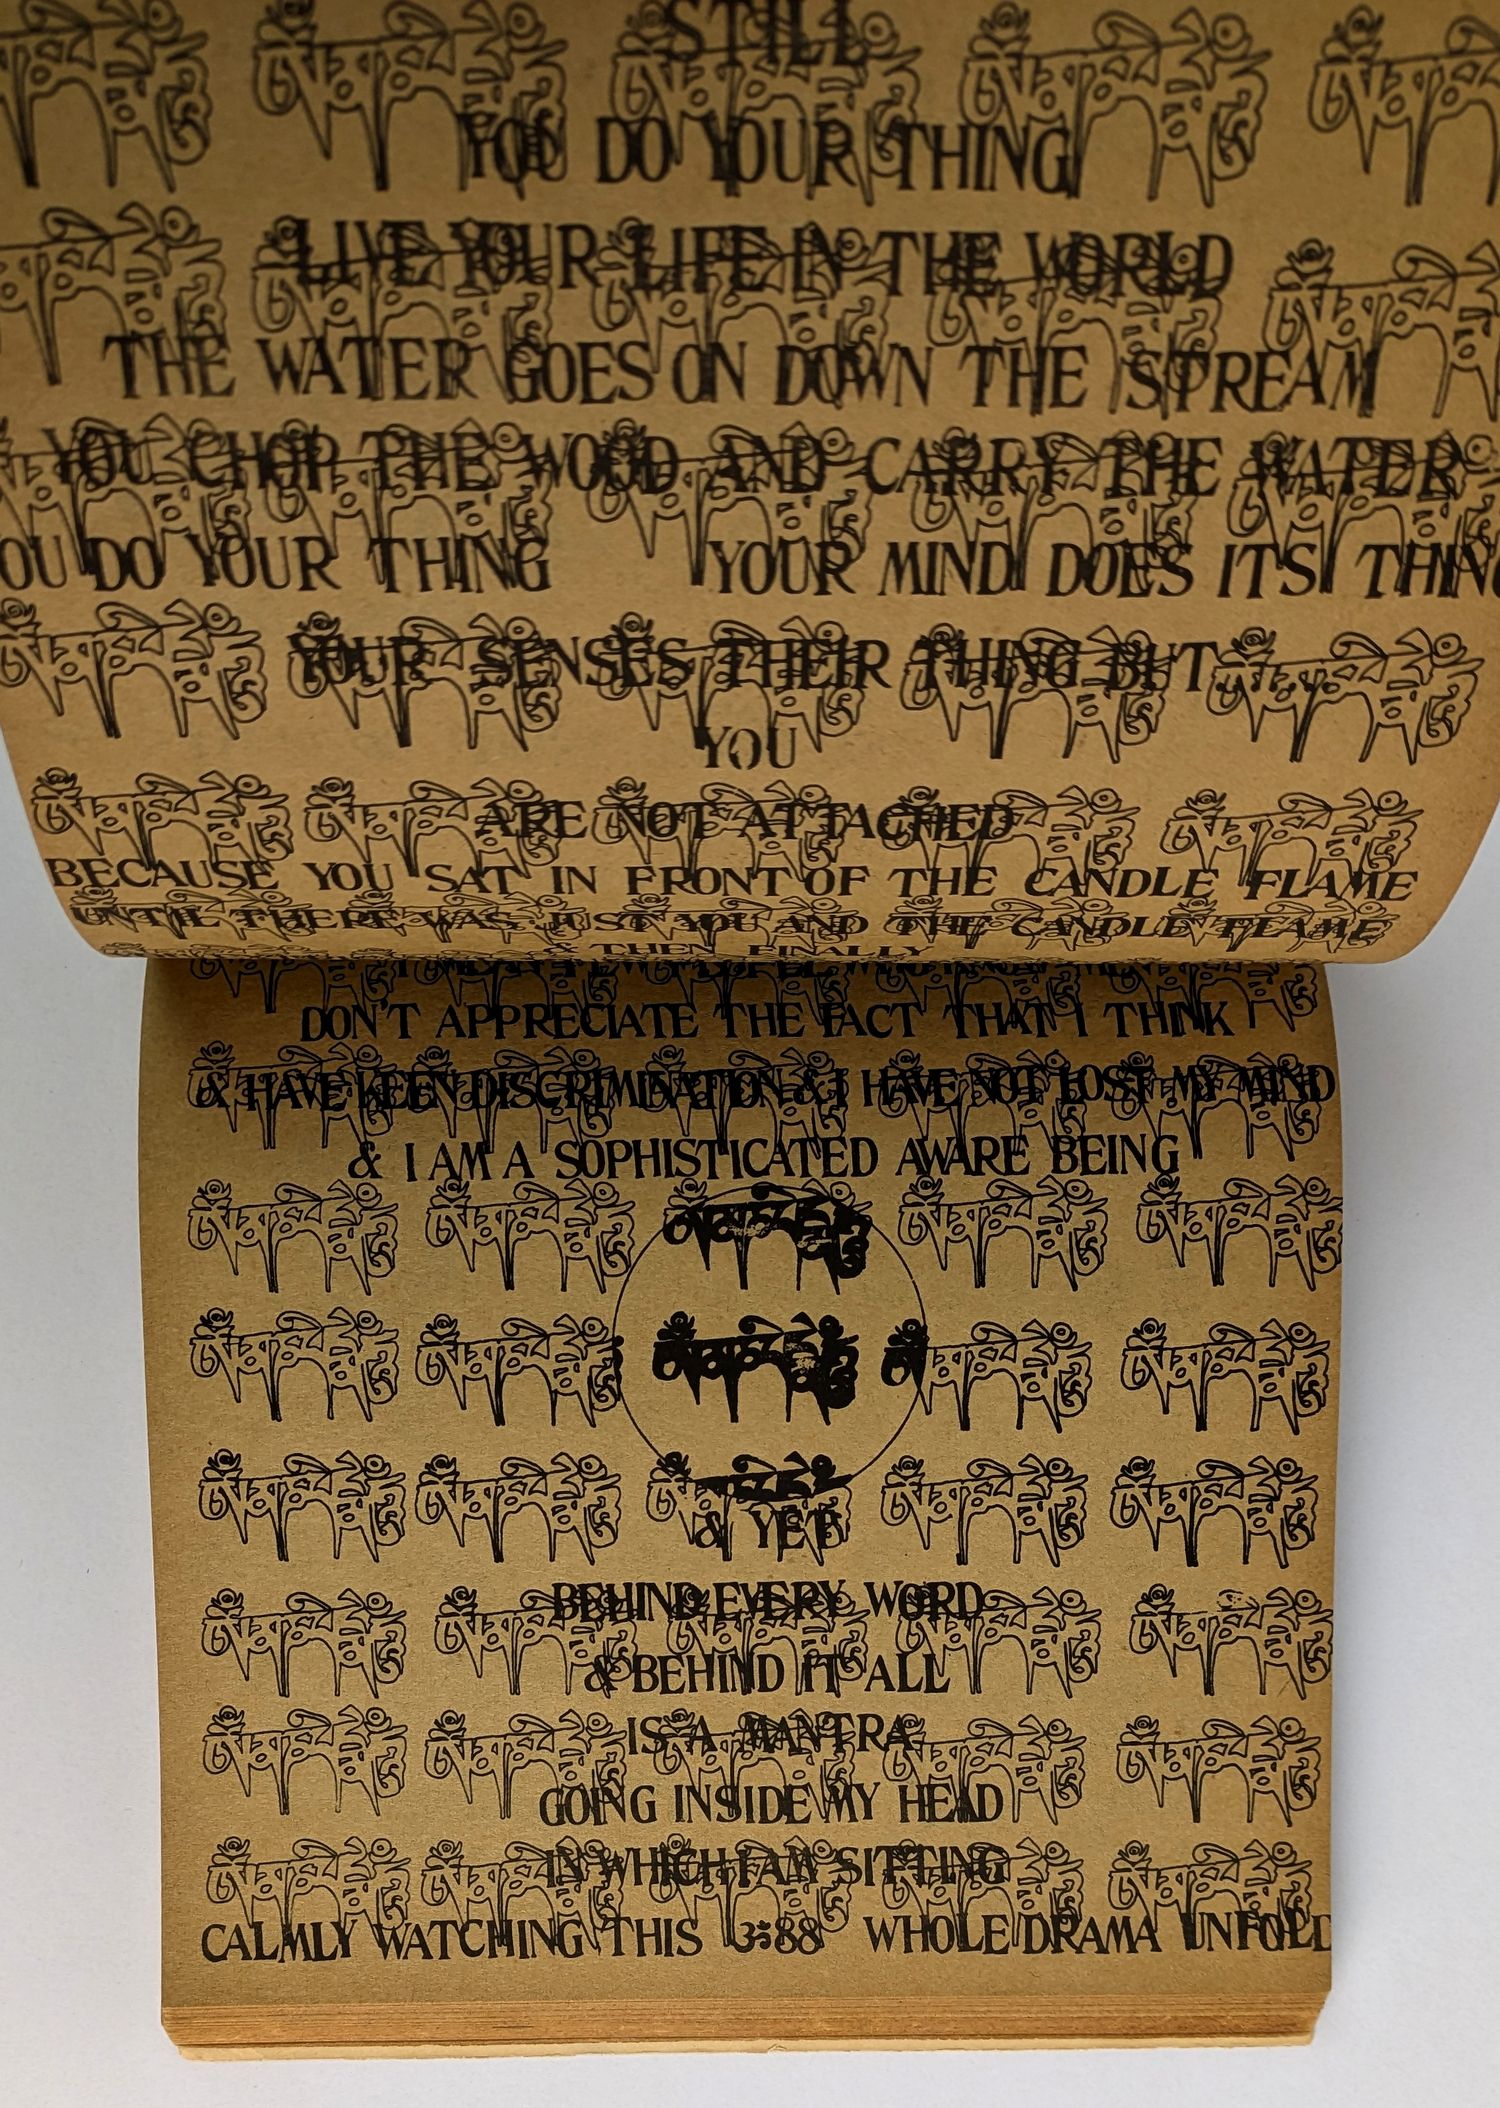 STILL
YOU DO YOUR THING
LIVE YOUR LIFE IN THE WORLD
THE WATER GOES ON DOWN THE STREAM
YOU CHOP THE WOOD AND CARRY THE WATER
OU DO YOUR THING YOUR MIND DOES ITS THING
YOUR SENSES THEIR THING BUT....
YOU
ARE NOT ATTACHED
BECAUSE YOU SAT IN FRONT OF THE CANDLE FLAME
UNTIL THERE WAS JUST YOU AND THE CANDLE FLAME
& THEN FINALLY
DON'T APPRECIATE THE FACT THAT I THINK
& HAVE KEEN DISCRIMINATION & I HAVE NOT LOST MY MIND
& I AM A SOPHISTICATED AWARE BEING
& YET
BEHIND EVERY WORD
& BEHIND IT ALL
IS A MANTRA
GOING INSIDE MY HEAD
IN WHICH I AM SITTING
CALMLY WATCHING THIS ॐ88 WHOLE DRAMA UNFOLD